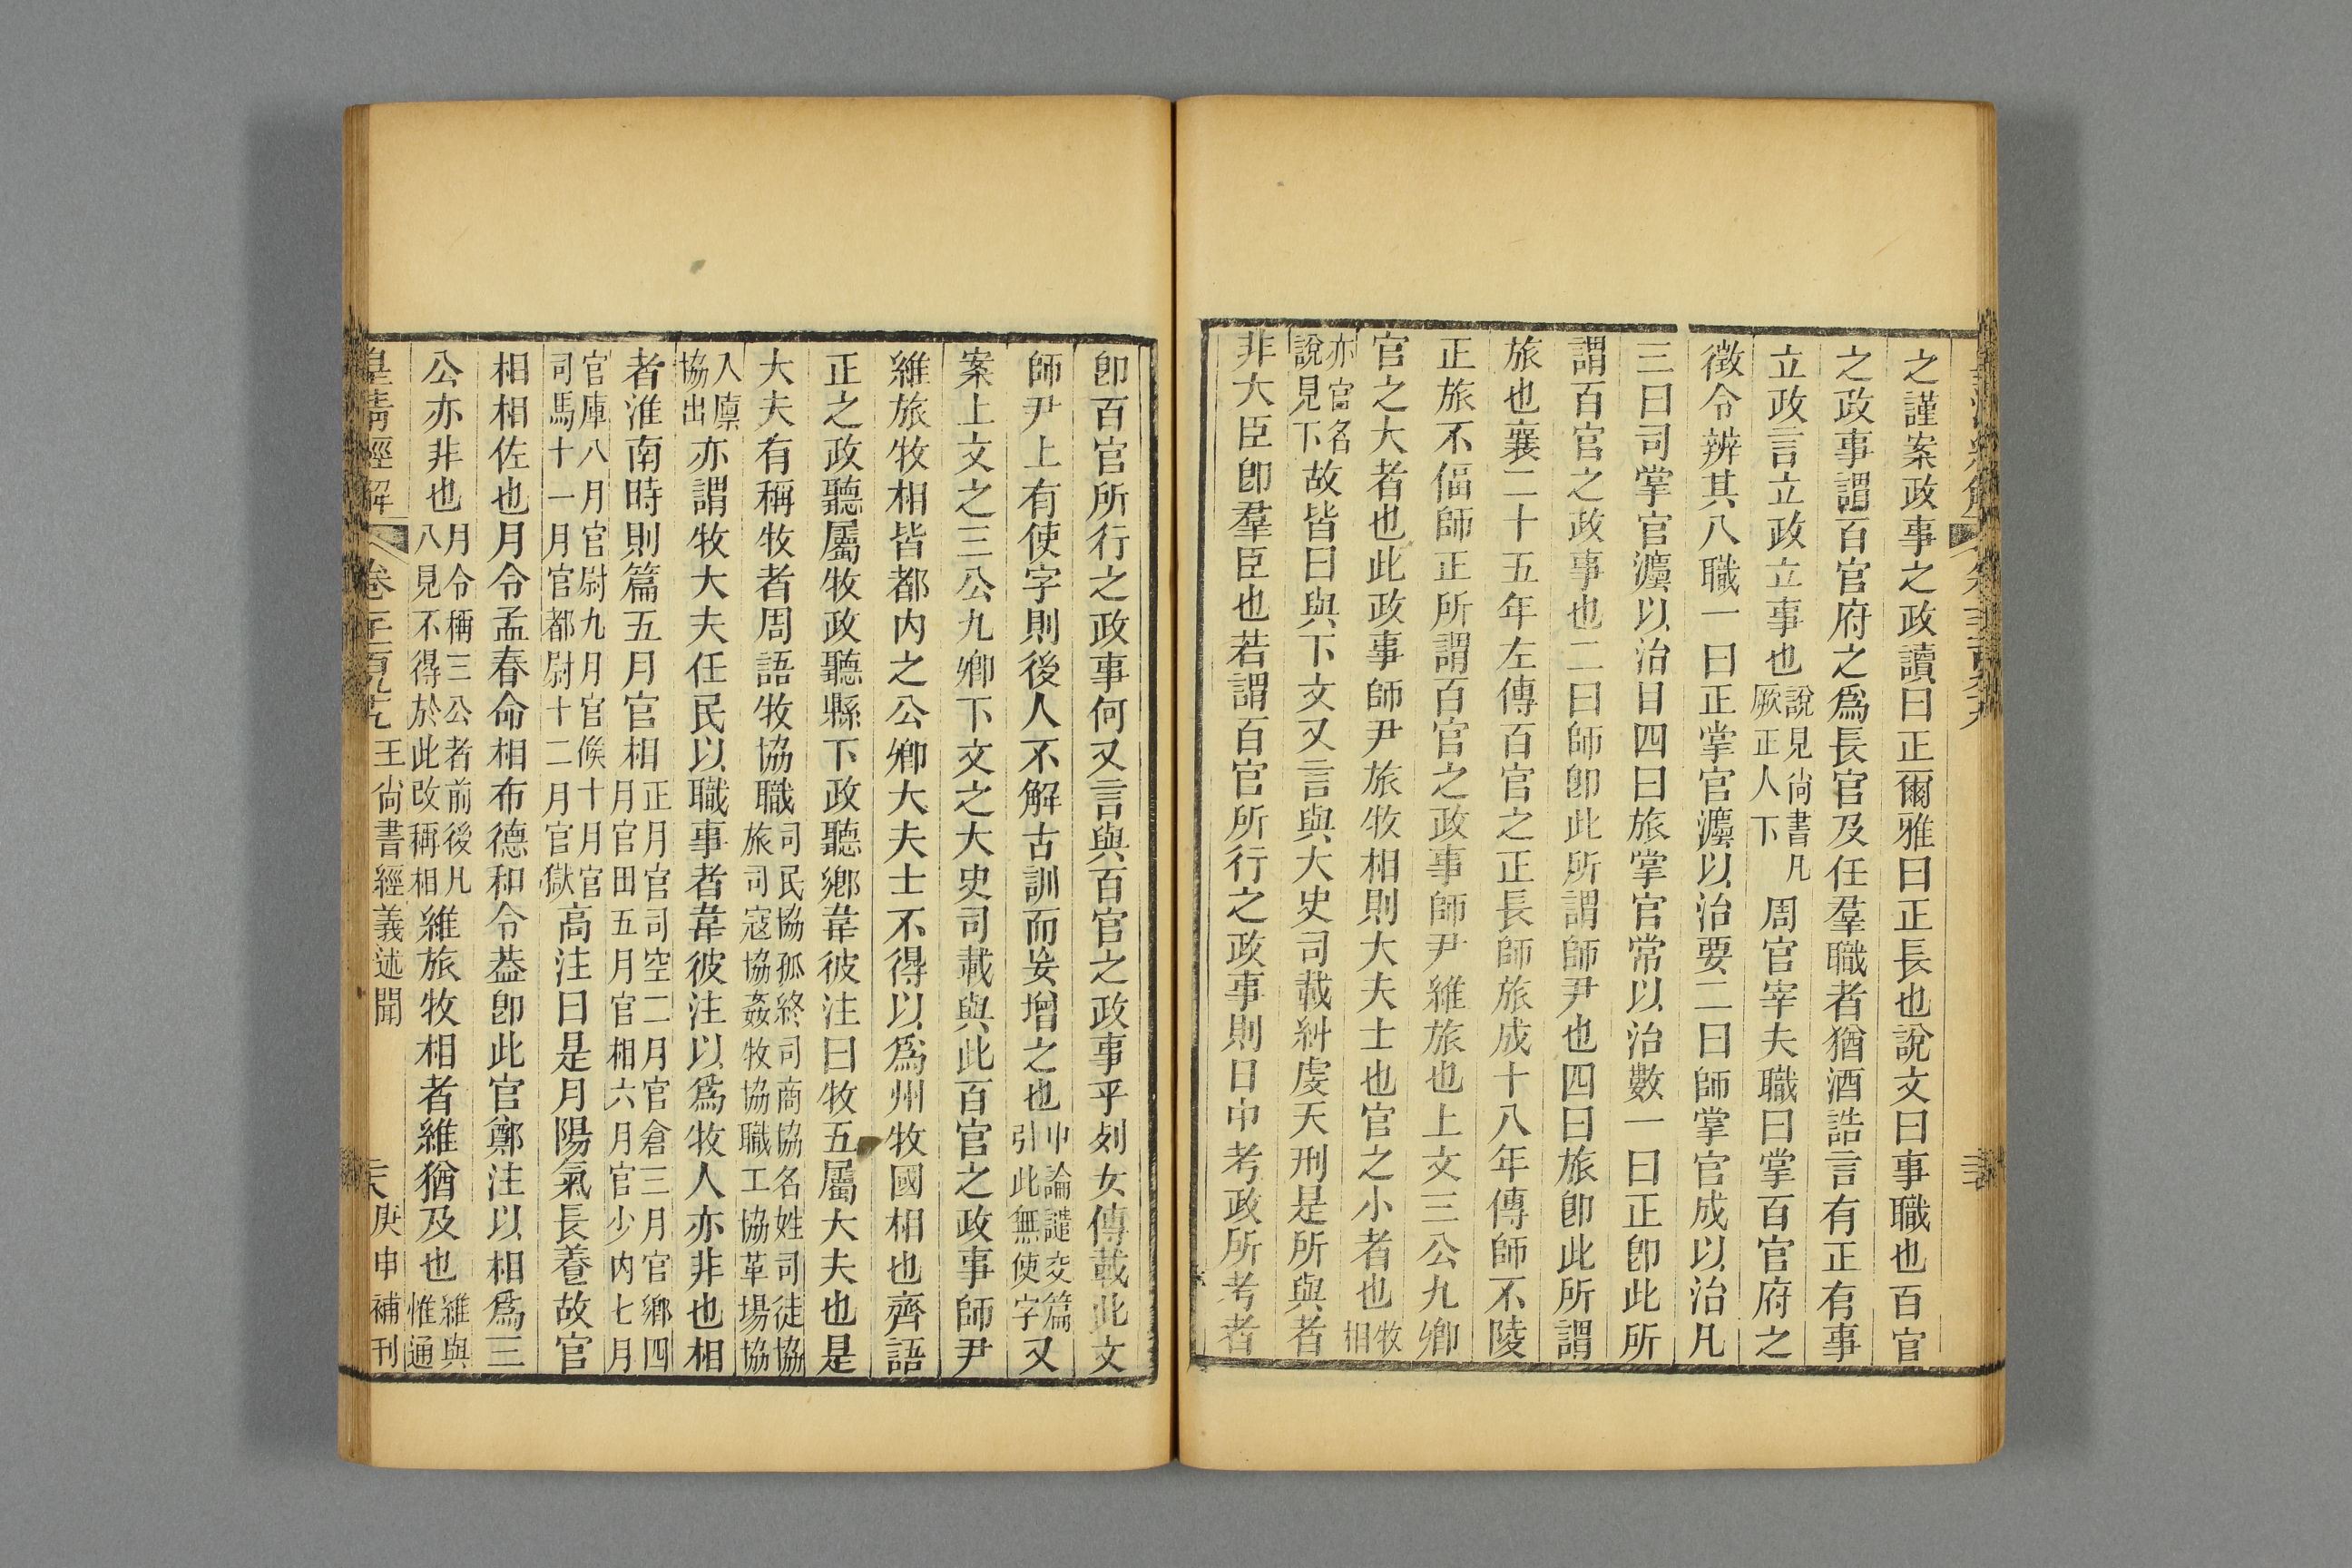 之謹案政事之政讀曰正爾雅曰正長也說文曰事職也百官
之政事謂百官府之爲長官及任羣職者猶酒誥言有正有事
立政言立政立事也說見尚書凡厥正人下周官宰夫職曰掌百官府之
徵令辨其八職一曰正掌官灋以治要二曰師掌官成以治凡
三曰司掌官灋以治目四曰旅掌官常以治數一曰正卽此所
謂百官之政事也二曰師卽此所謂師尹也四曰旅卽此所謂
旅也襄二十五年左傳百官之正長師旅成十八年傳師不陵
正旅不偪師正所謂百官之政事師尹維旅也上文三公九卿
官之大者也此政事師尹旅牧相則大夫士也官之小者也牧相
亦官名說見下故皆曰與下文又言與大史司載糾虔天刑是所與者
非大臣卽羣臣也若謂百官所行之政事則日中考政所考者
卽百官所行之政事何又言與百官之政事乎列女傳載此文
師尹上有使字則後人不解古訓而妄增之也中論譴交篇引此無使字又
案上文之三公九卿下文之大史司載與此百官之政事師尹
維旅牧相皆都內之公卿大夫士不得以爲州牧國相也齊語
正之政聽屬牧政聽縣下政聽鄉韋彼注曰牧五屬大夫也是
大夫有稱牧者周語牧協職司民協孤終司商協名姓司徒協旅司寇協姦牧協職工協革場協
入廩協出亦謂牧大夫任民以職事者韋彼注以爲牧人亦非也相
者淮南時則篇五月官相正月官司空二月官倉三月官鄉四月官田五月官相六月官少内七月
官庫八月官尉九月官候十月官司馬十一月官都尉十二月官獄高注曰是月陽氣長養故官
相相佐也月令孟春命相布德和令葢卽此官鄭注以相爲三
公亦非也月令稱三公者前後凡八見不得於此改稱相維旅牧相者維猶及也維與惟通
皇清經解 卷 王尚書經義述聞 庚申補刊